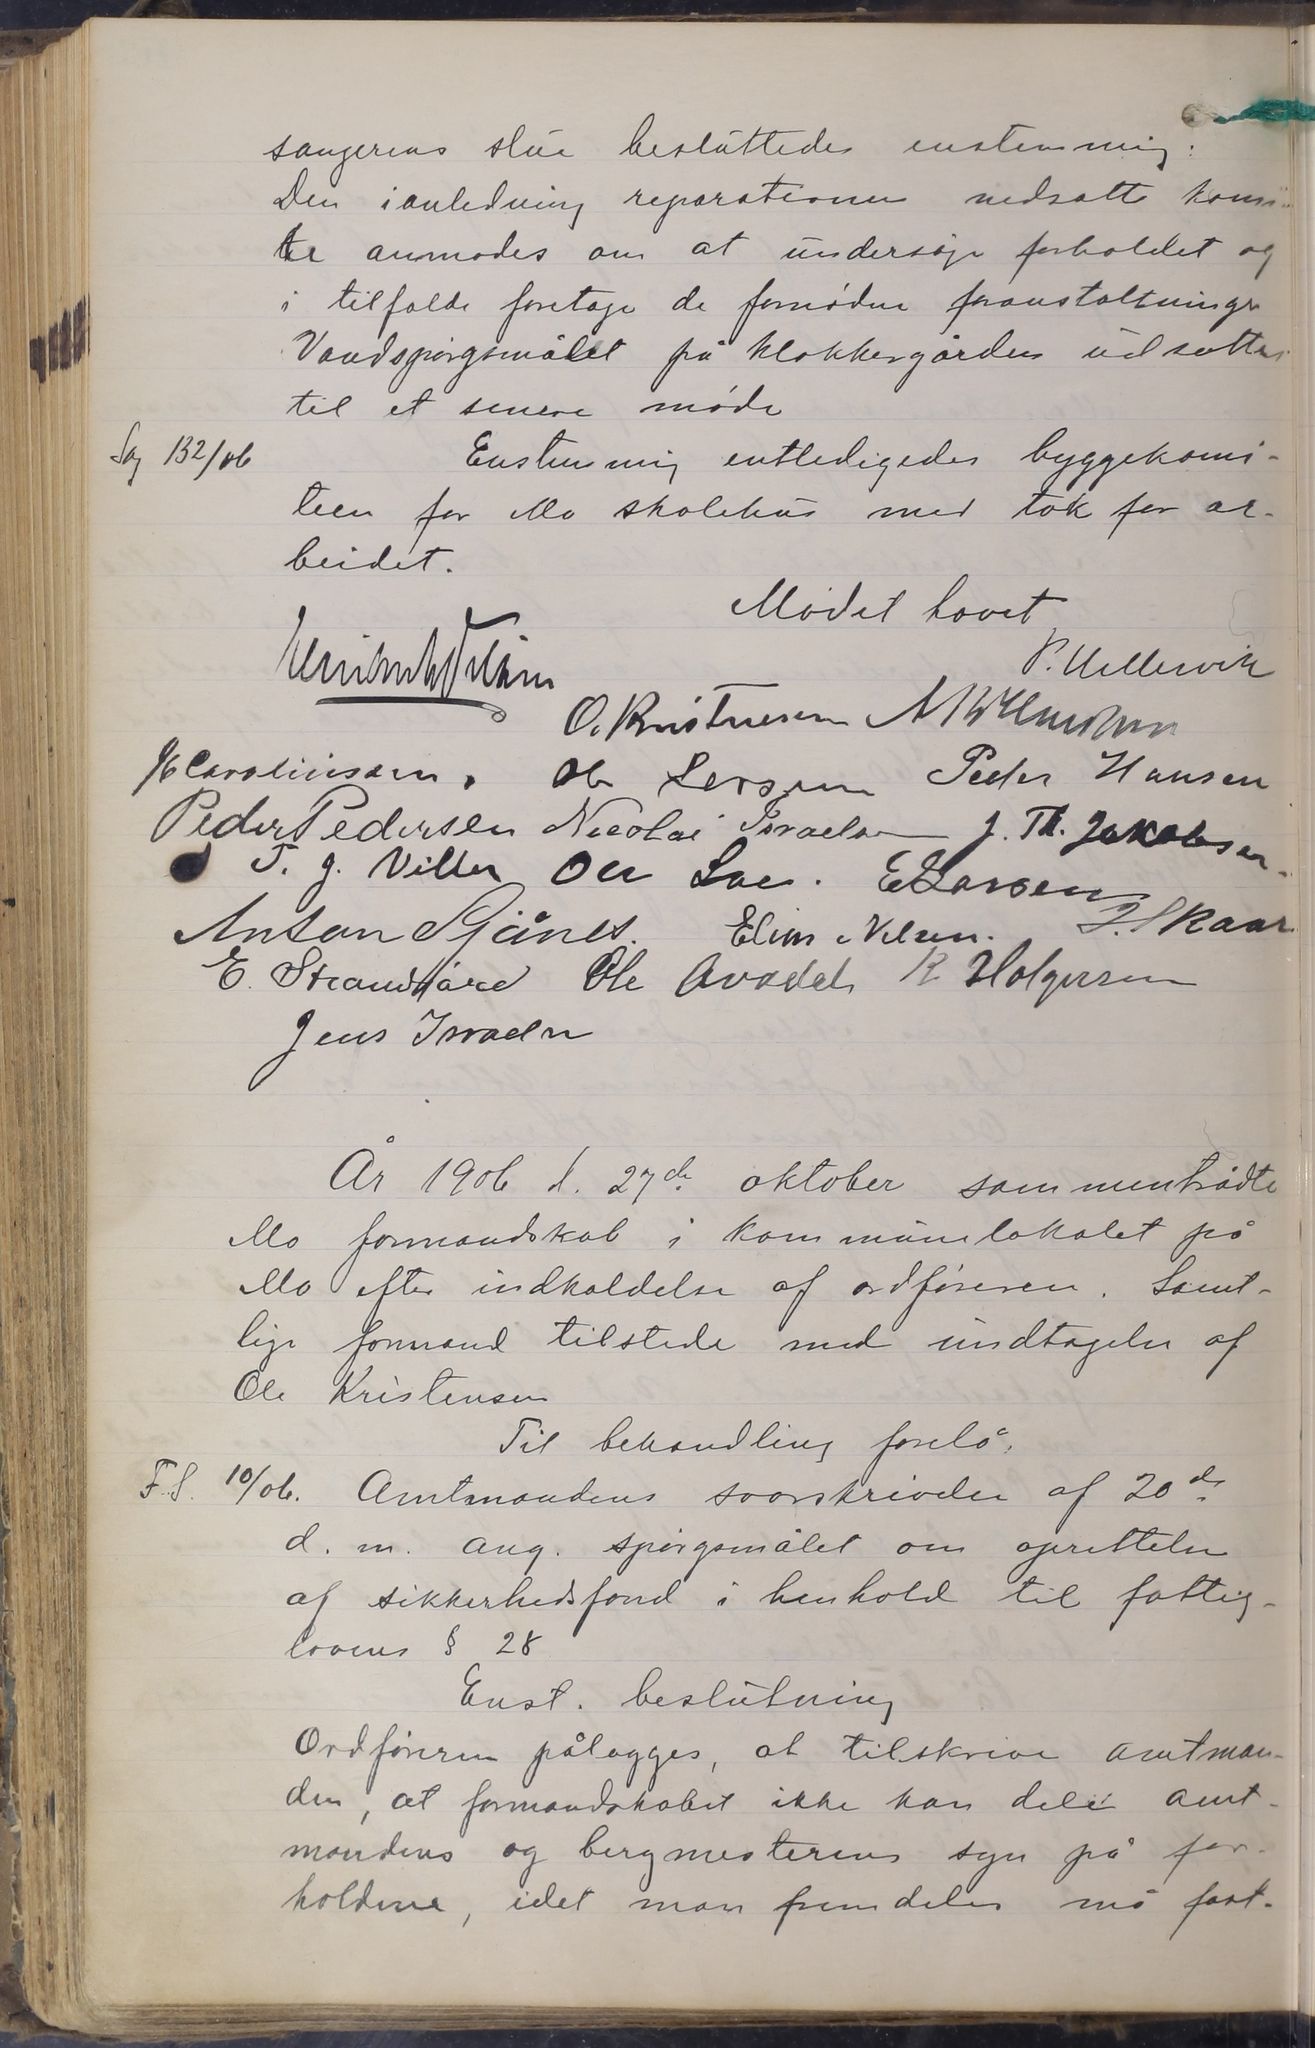 sangerens stue besluttedes enstemmig:
Den i anledning reparationen nedsatte komi-
te anmodes om at undersøge forholdet og
i tilfælde foretage de fornødne foranstaltninger
Vandspørgsmålet på klokkergården udsættes
til et senere møde
Sag 132/06 Enstemmig entledigedes byggekomi-
teen for Mo skolehus med tak for ar-
beidet.
Mødet hævet
P. Hellervik
O. Kristensen
H Carolinsen. Ole Larsen Peder Hansen
Peder Pedersen Nicolai Israelsen J. Th. Jakobsen.
T. J. Ole E Larsen
Anton Stjånes. Elias Nilsen. Skaar
E. Strandjord Ole K Holgersen
Jens Israelsen
År 1906 d. 27de oktober sammentrådte
Mo formandskab i kommunelokalet på
Mo efter indkaldelse af ordføreren. Samt-
lige formænd tilstede med undtagelse af
Ole Kristensen
Til behandling forelå:
F.S. 10/06. Amtmandens svarskrivelse af 20de
d. m. ang. spørgsmålet om oprettelse
af sikkerhedsfond i henhold til fattig-
lovens § 28
Enst. beslutning
Ordføreren pålægges, at tilskrive amtman-
den, at formandskabet ikke kan dele amt-
mandens og bergmesterens syn på for-
holdene, idet man fremdeles må fast-